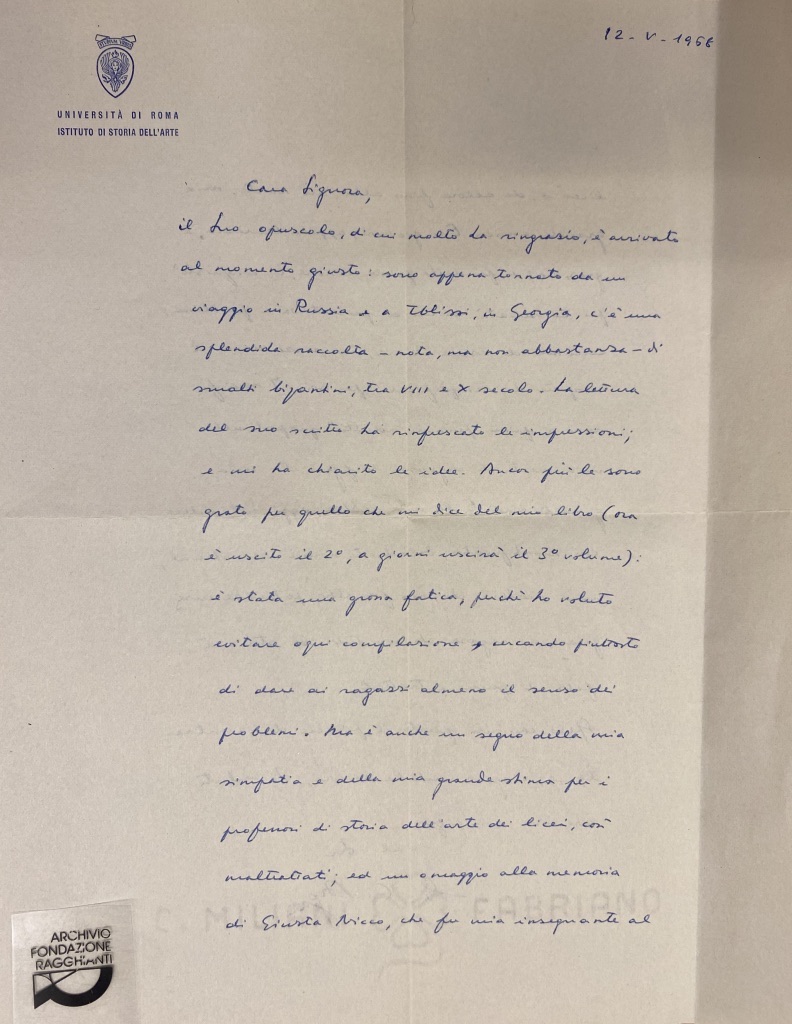 12-V-1968
UNIVERSITÀ DI ROMA
ISTITUTO DI STORIA DELL'ARTE
Cara Signora,
il Suo opuscolo, di cui molto La ringrazio, è arrivato
al momento giusto: sono appena tornato da un
viaggio in Russia e a Tblissi, in Georgia, c'è una
splendida raccolta - nota, ma non abbastanza - di
smalti bizantini, tra VIII e X secolo. La lettura
del suo scritto ha rinfrescato le impressioni;
e mi ha chiarito le idee. Ancor più le sono
grato per quello che mi dice del mio libro (ora
è uscito il 2°, a giorni uscirà il 3° volume):
è stata una grossa fatica, perché ho voluto
evitare ogni compilazione, cercando piuttosto
di dare ai ragazzi almeno il senso dei
problemi. Ma è anche un segno della mia
simpatia e della mia grande stima per i
professori di storia dell'arte dei licei, così
maltrattati; ed un omaggio alla memoria
di Giusta Nicco, che fu mia insegnante al
FABRIANO
ARCHIVIO
FONDAZIONE
RAGGHIANTI